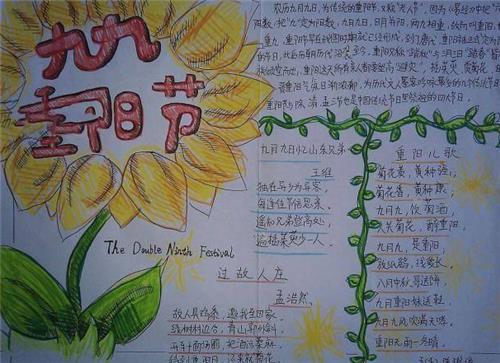 九九
重阳节
The Double Ninth Festival
农历九月九日,为传统的重阳节,又称"老人节"。因为《易经》中把"
阳数,把"九"定为阳数,九月九日,日月并阳,两九相重,故而叫重阳,
重九。重阳节早在战国时期就已经形成,到了唐代,重阳被正式定为
的节日,此后历朝历代沿袭至今。重阳又称"踏秋"与三月三日"踏春"皆
重阳这天所有亲人都要登高"避灾",插茱萸、赏菊花。
重阳与除、清、三节也是中国传统节日里祭祖的四大节日。
九月九日忆山东兄弟
王维
独在异乡为异客,
每逢佳节倍思亲。
遥知兄弟登高处,
遍插茱萸少一人。
重阳儿歌
菊花黄,黄种强;
菊花香,黄种康;
九月九,饮菊酒,
人共菊花醉重阳。
九月九,是重阳,
放纸鹞,线爱长。
八月中秋哥送饼,
九月重阳妹送鞋
九月九风吹满天哮。
重阳无雨一冬晴。
过故人庄
孟浩然
故人具鸡黍,邀我至田家。
绿树村边合,青山郭外斜。
开轩面场圃,把酒话桑麻。
待到重阳日,还来就菊花。